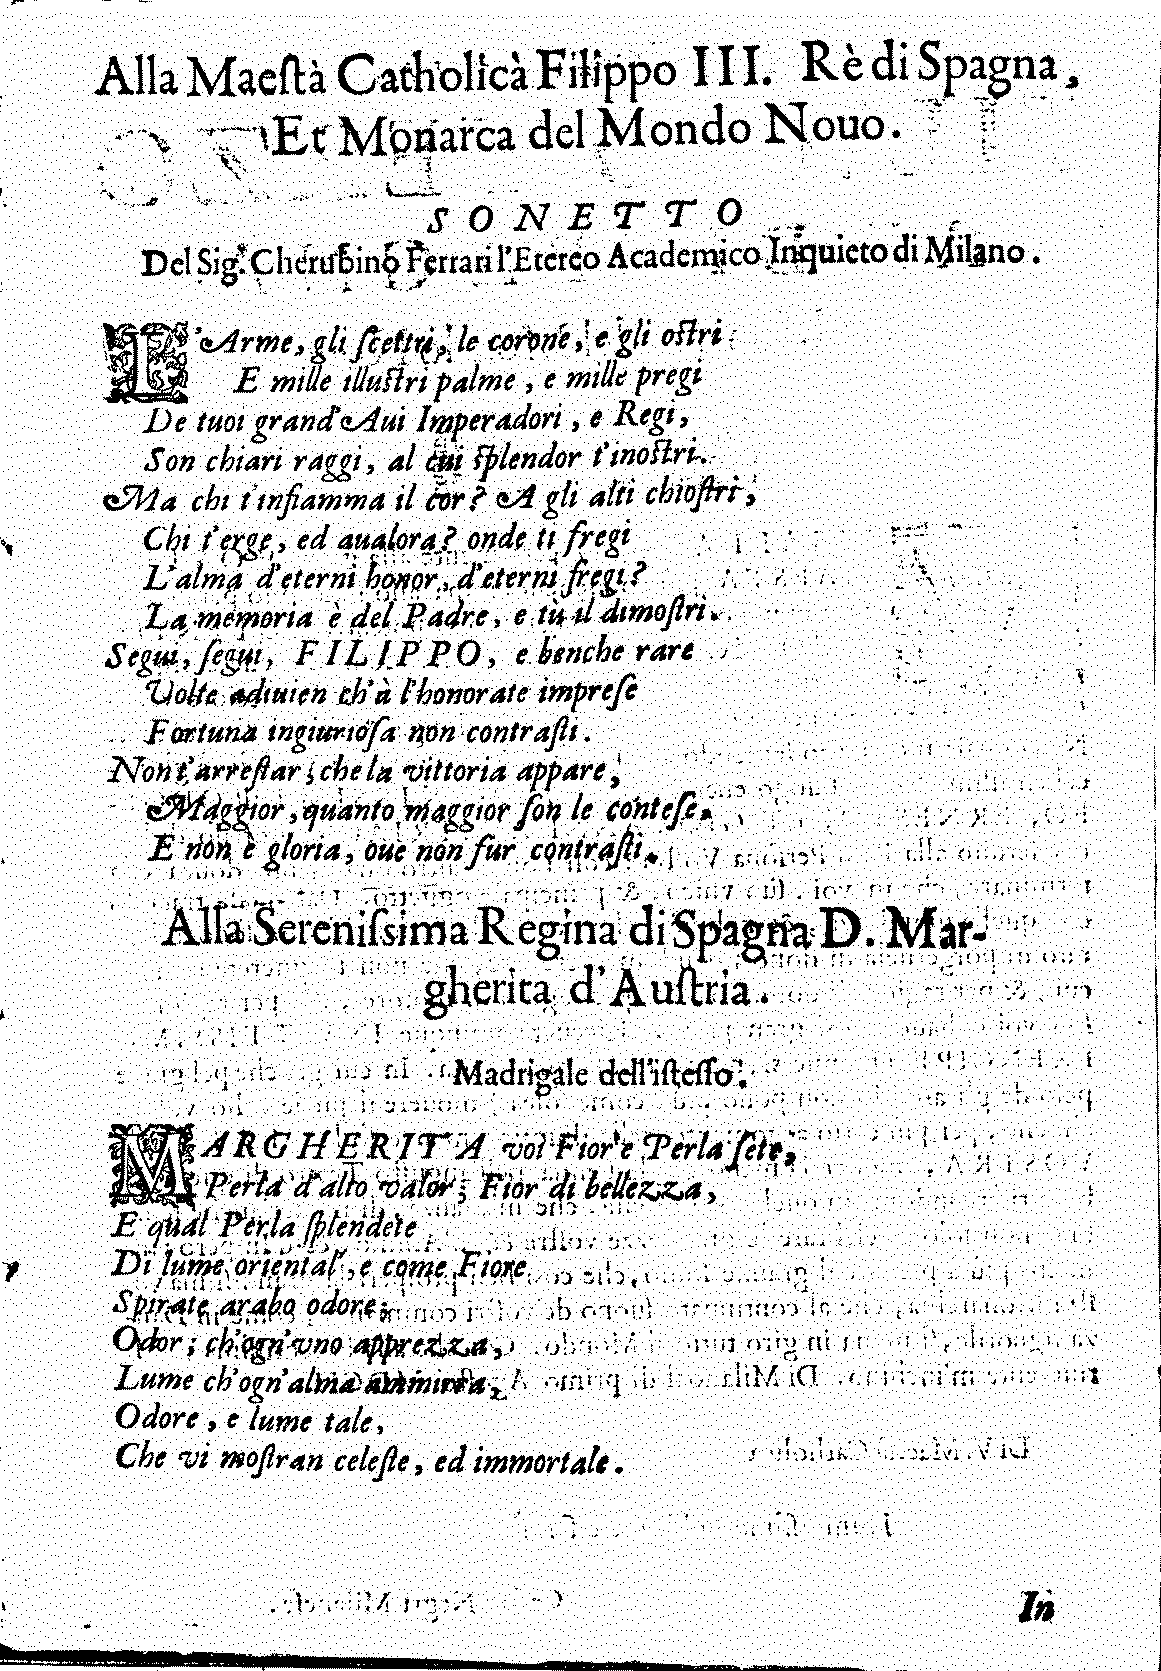 Alla Maeſtà Catholicà Filippo III. Rè di Spagna,
Et Monarca del Mondo Nouo.
SONETTO
Del Sig. Cherubino Ferrari l'Etereo Academico Inquieto di Milano.
L'Arme, gli ſcettri, le corone, e gli oſtri
E mille illuſtri palme, e mille pregi
De tuoi grand'Aui Imperadori, e Regi,
Son chiari raggi, al cui ſplendor t'inoſtri.
Ma chi t'infiamma il cor? A gli alti chioſtri,
Chi t'erge, ed aualora? onde ti fregi
L'alma d'eterni honor, d'eterni fregi?
La memoria è del Padre, e tù il dimoſtri.
Segui, ſegui, FILIPPO, e benche rare
Volte adiuien ch'à l'honorate impreſe
Fortuna ingiurioſa non contraſti.
Non t'arreſtar; che la vittoria appare,
Maggior, quanto maggior ſon le conteſe.
E non è gloria, oue non fur contraſti.
Alla Sereniſsima Regina di Spagna D. Mar-
gherita d'Auſtria.
Madrigale dell'iſteſſo.
MARGHERITA voi Fior'e Perla ſete,
Perla d'alto valor; Fior di bellezza,
E qual Perla ſplendete
Di lume oriental, e come Fiore
Spirate arabo odore;
Odor; ch'ogn'vno apprezza,
Lume ch'ogn'alma ammira,
Odore, e lume tale,
Che vi moſtran celeſte, ed immortale.
In